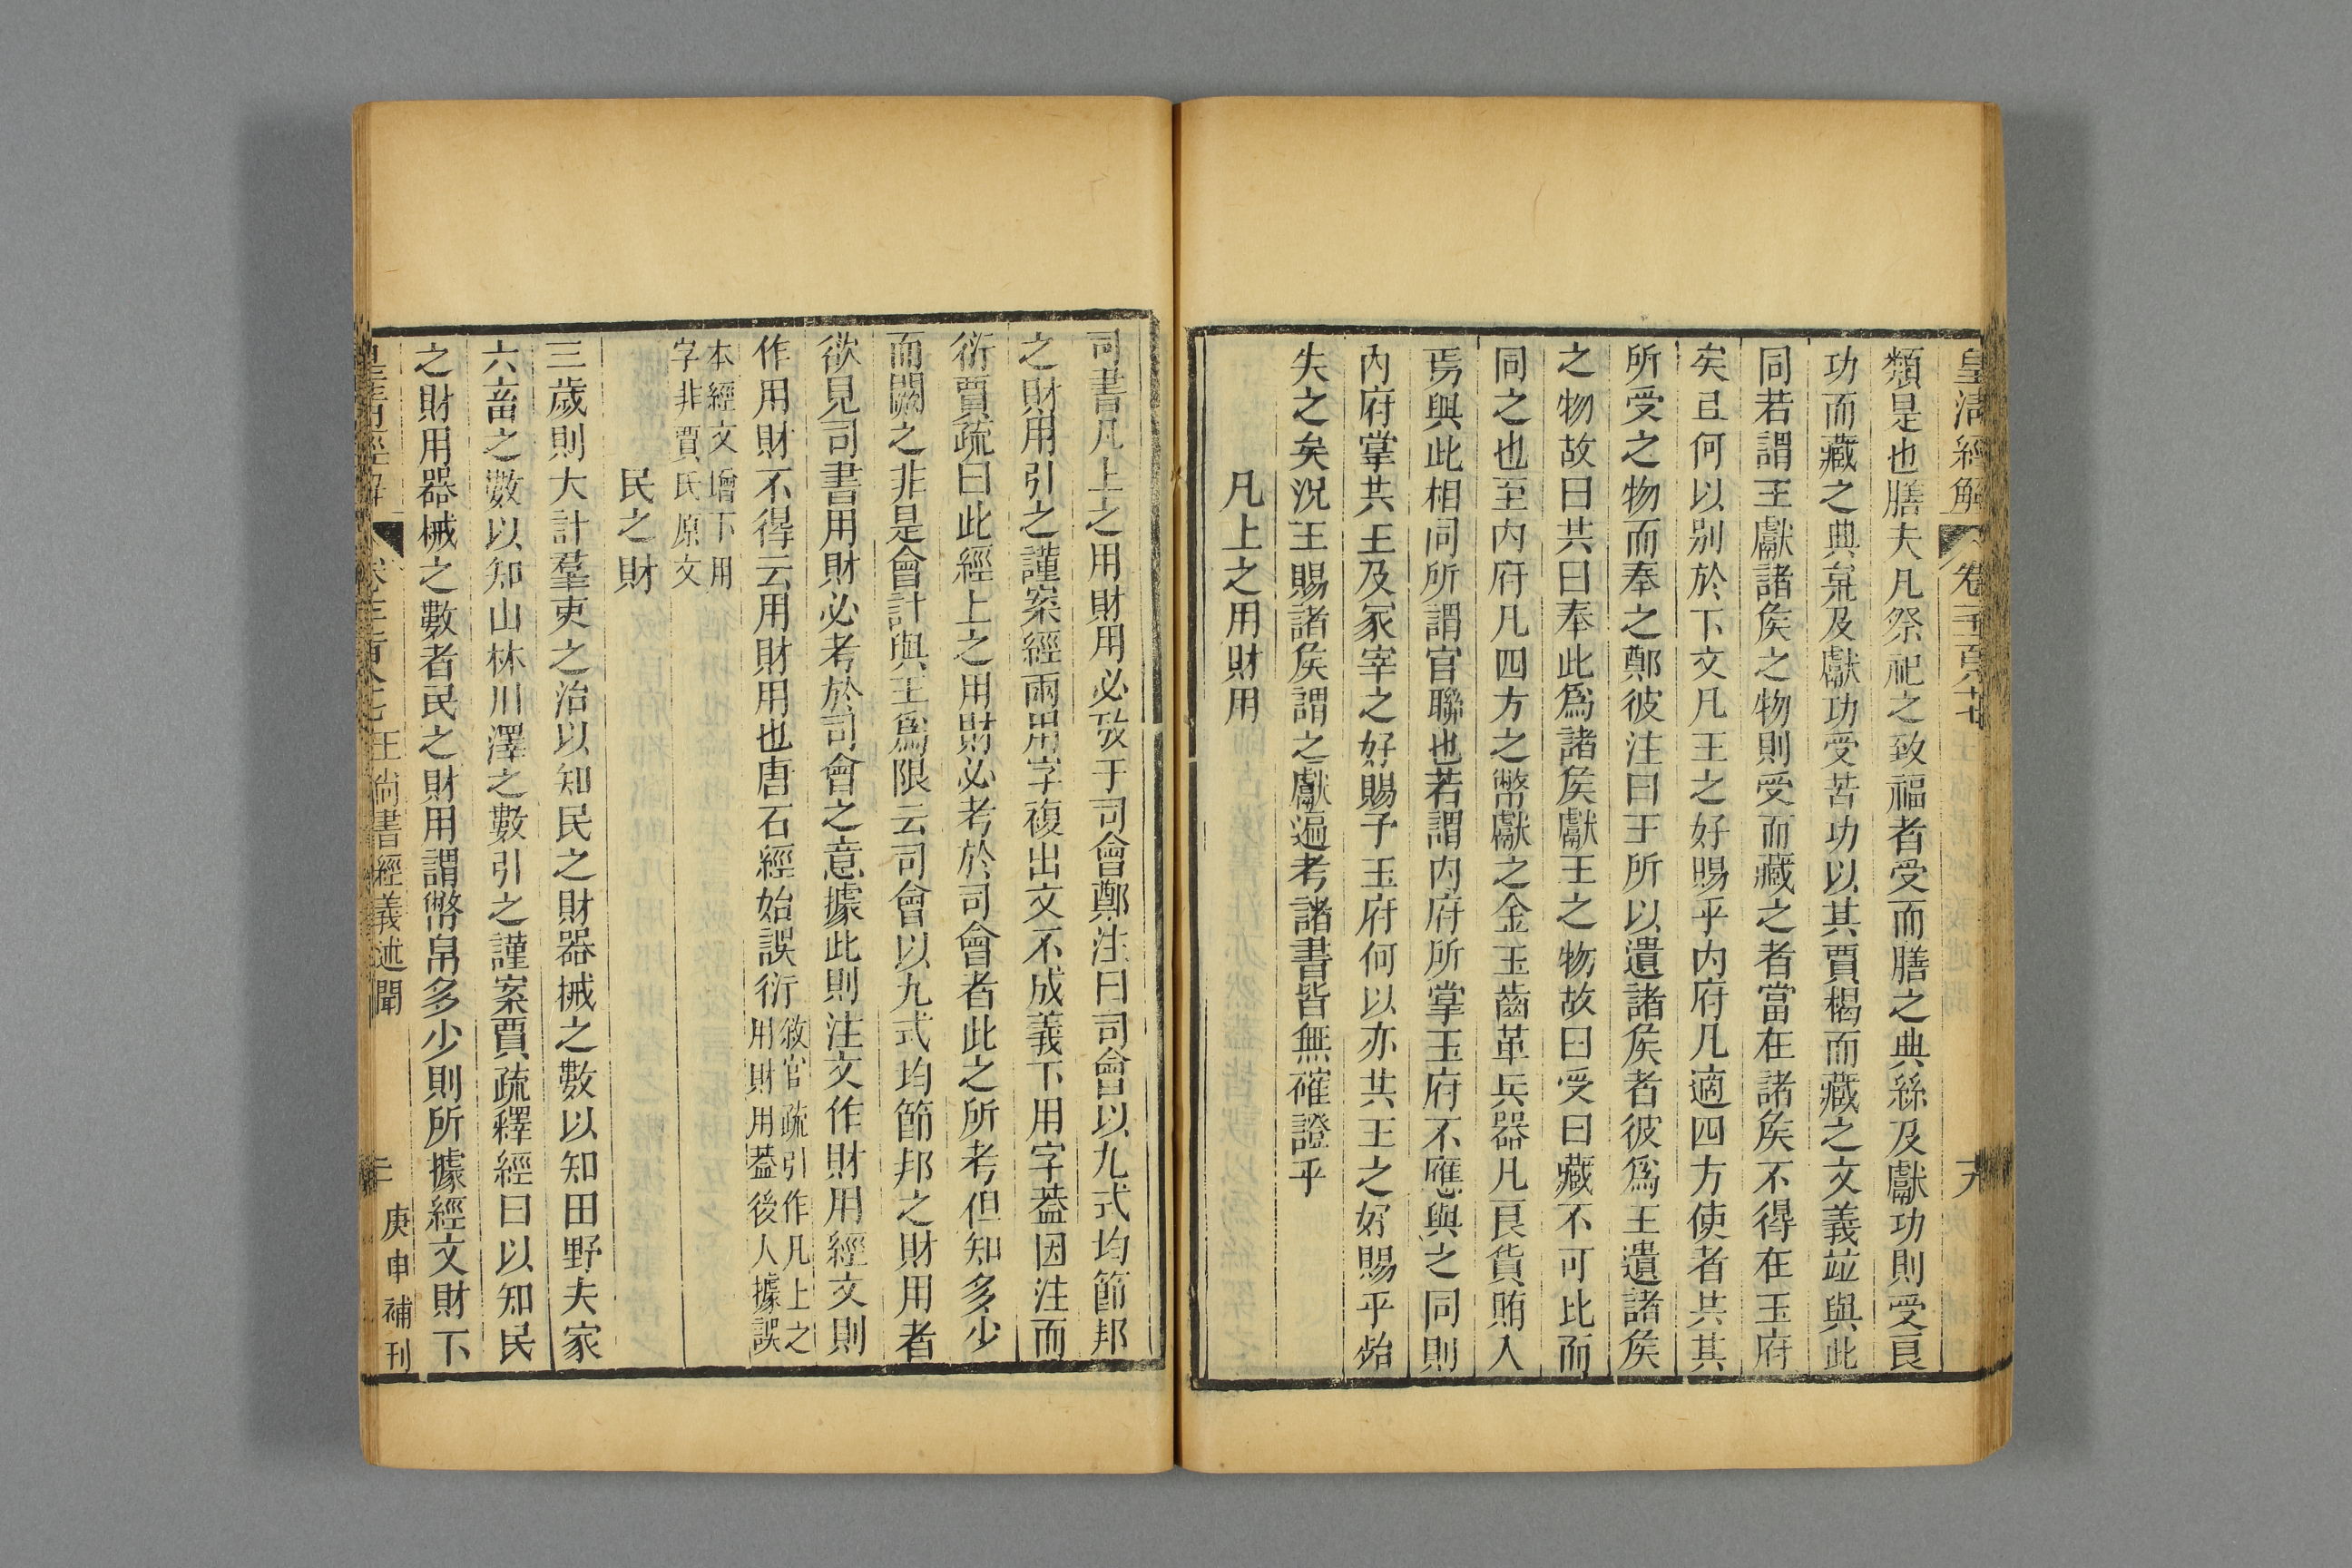 皇清經解
類是也膳夫凡祭祀之致福者受而膳之典絲及獻功則受良
功而藏之典枲及獻功受苦功以其賈楬而藏之文義竝與此
同若謂王獻諸矦之物則受而藏之者當在諸矦不得在玉府
矣且何以别於下文凡王之好賜乎内府凡適四方使者共其
所受之物而奉之鄭彼注曰王所以遺諸矦者彼爲王遺諸矦
之物故曰共曰奉此爲諸矦獻王之物故曰受曰藏不可比而
同之也至内府凡四方之幣獻之金玉齒革兵器凡良貨賄入
焉與此相同所謂官聯也若謂内府所掌玉府不應與之同則
內府掌共王及冢宰之好賜予玉府何以亦共王之好賜乎殆
失之矣況王賜諸矦謂之獻遍考諸書皆無確證乎
凡上之用財用
司書凡上之用財用必攷于司會鄭注曰司會以九式均節邦
之財用引之謹案經兩用字複出文不成義下用字葢因注而
衍賈疏曰此經上之用財必考於司會者此之所考但知多少
而闕之非是會計與王爲限云司會以九式均節邦之財用者
欲見司書用財必考於司會之意據此則注文作財用經文則
作用財不得云用財用也唐石經始誤衍敘官疏引作凡上之
用財用葢後人據誤
本經文增下用
字非賈氏原文
民之財
三歲則大計羣吏之治以知民之財器械之數以知田野夫家
六畜之數以知山林川澤之數引之謹案賈疏釋經曰以知民
之財用器械之數者民之財用謂幣帛多少則所據經文財下
王尚書經義述聞
庚申補刊